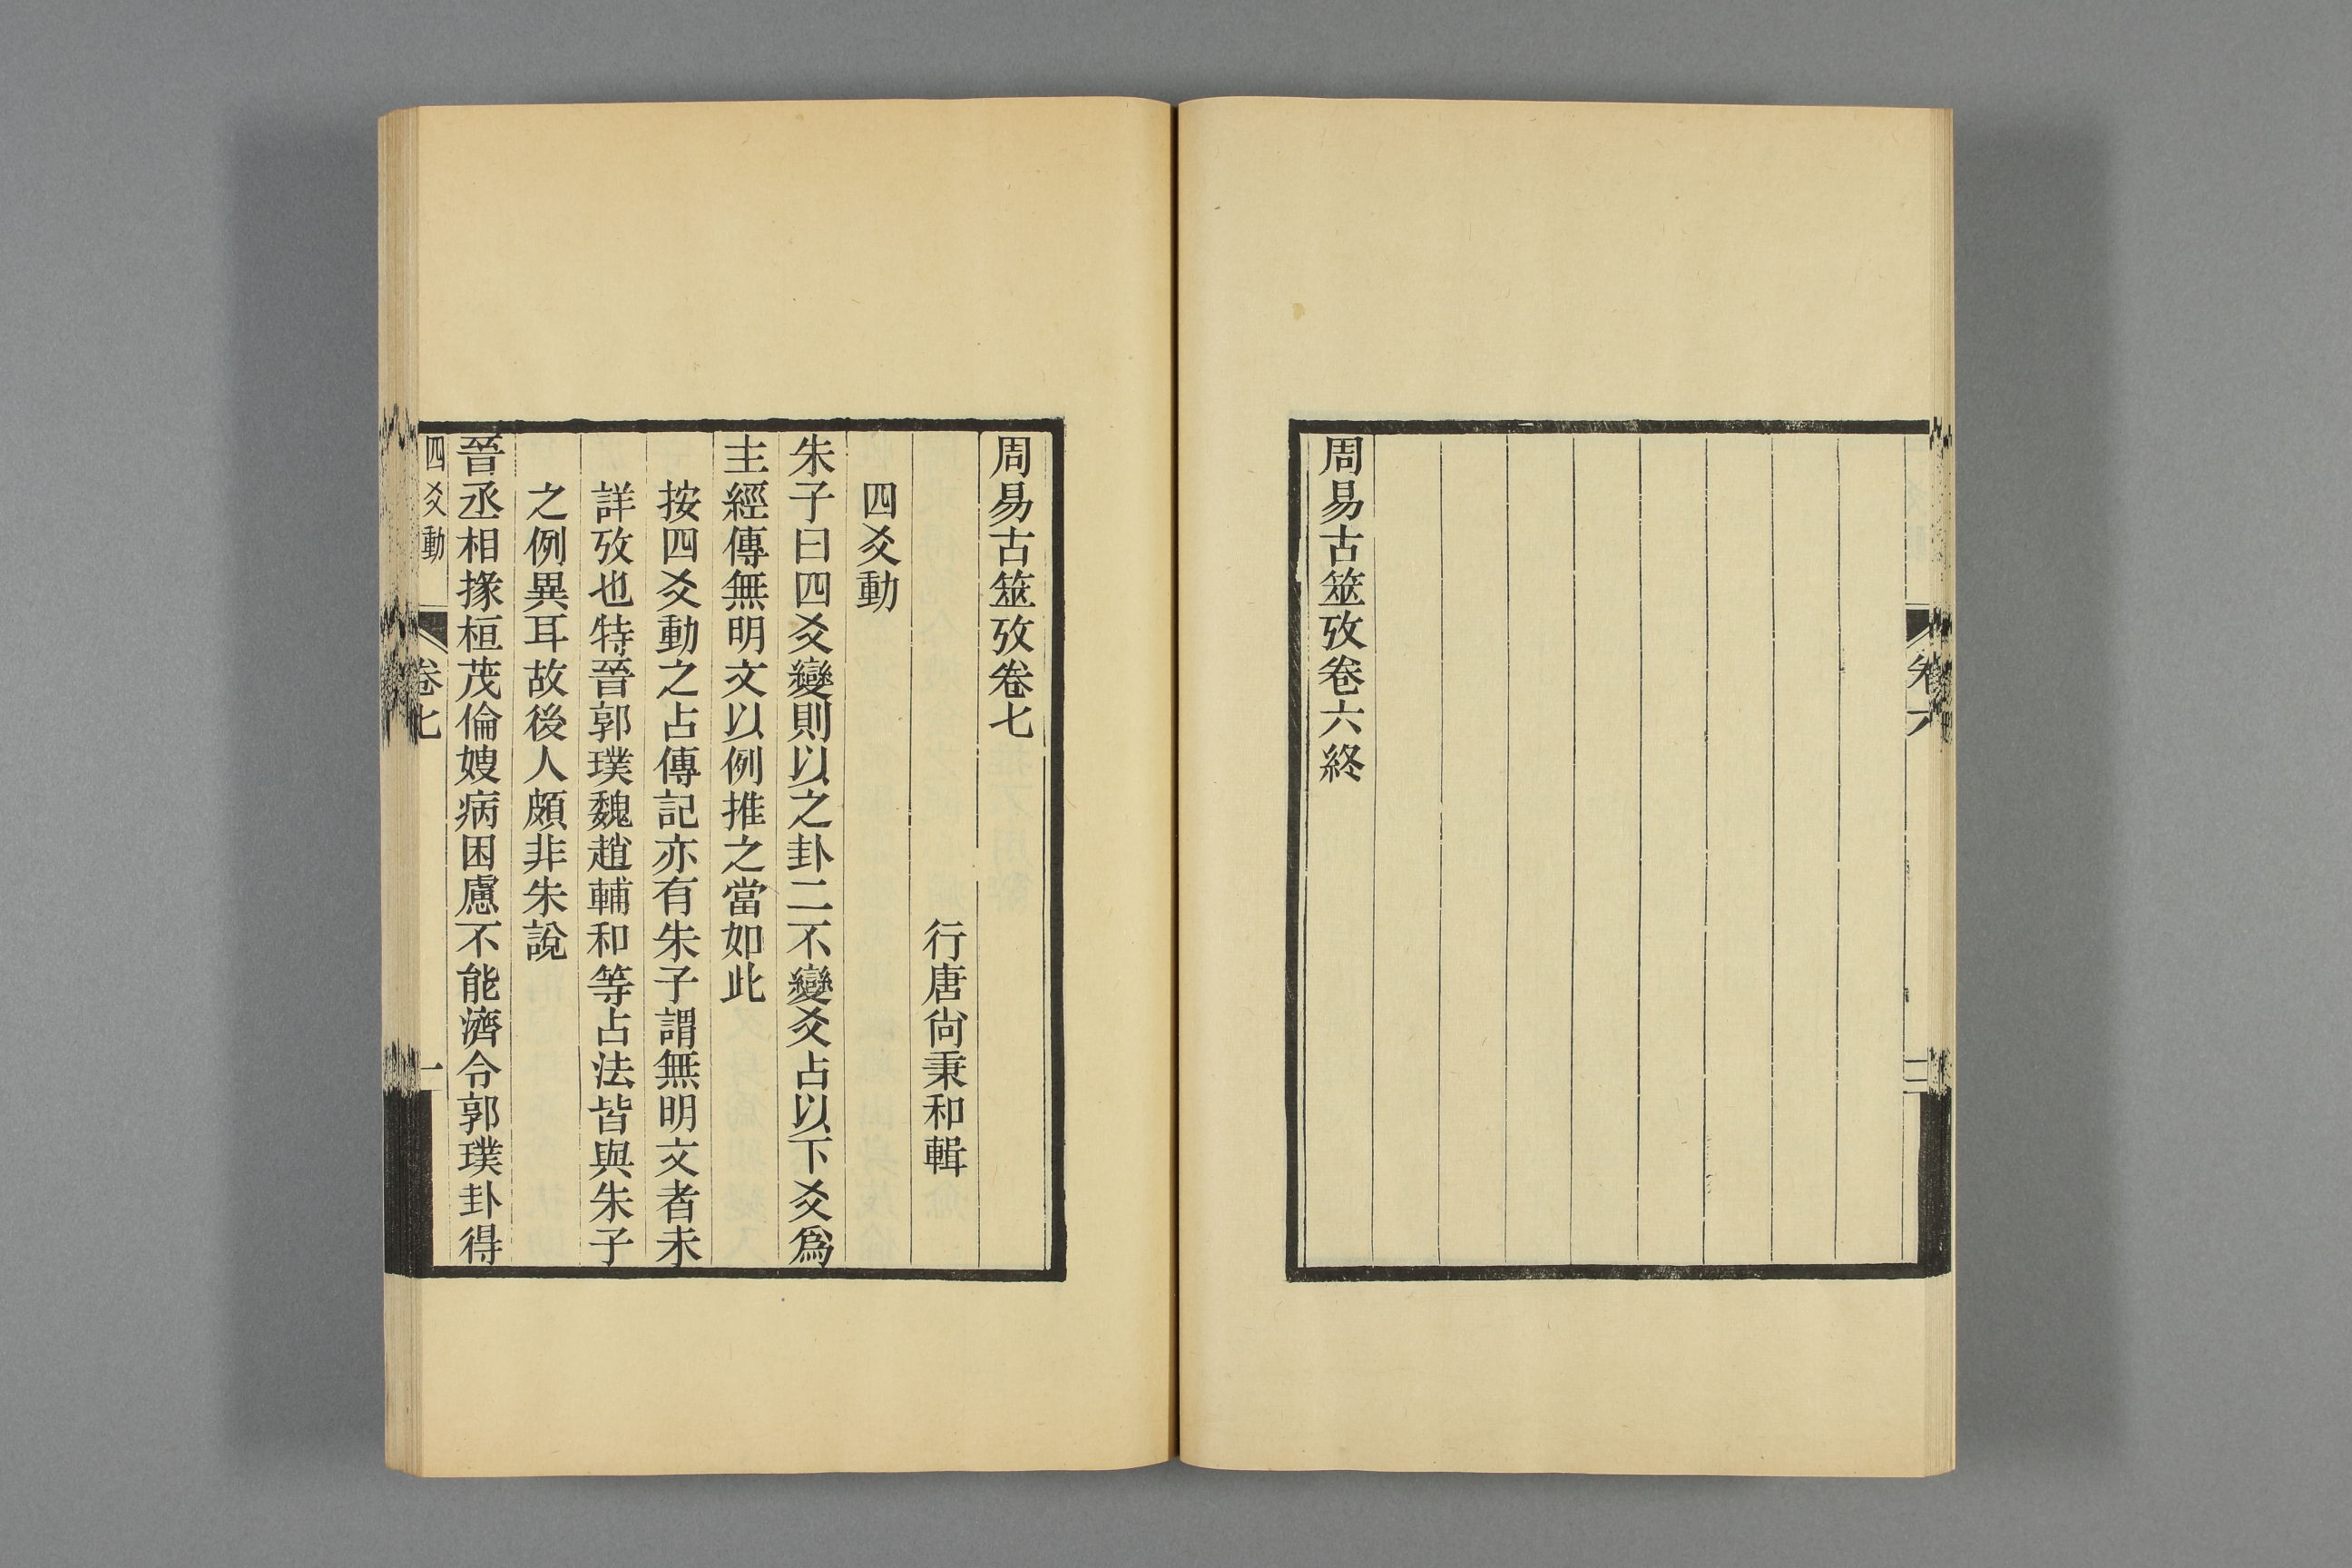 卷六
周易古筮攷卷六終
周易古筮攷卷七
行唐尙秉和輯
四爻動
朱子曰四爻變則以之卦二不變爻占以下爻爲
主經傳無明文以例推之當如此
按四爻動之占傳記亦有朱子謂無明文者未
詳攷也特晉郭璞魏趙輔和等占法皆與朱子
之例異耳故後人頗非朱說
晉丞相掾桓茂倫嫂病困慮不能濟令郭璞卦得
四爻動 卷七 一